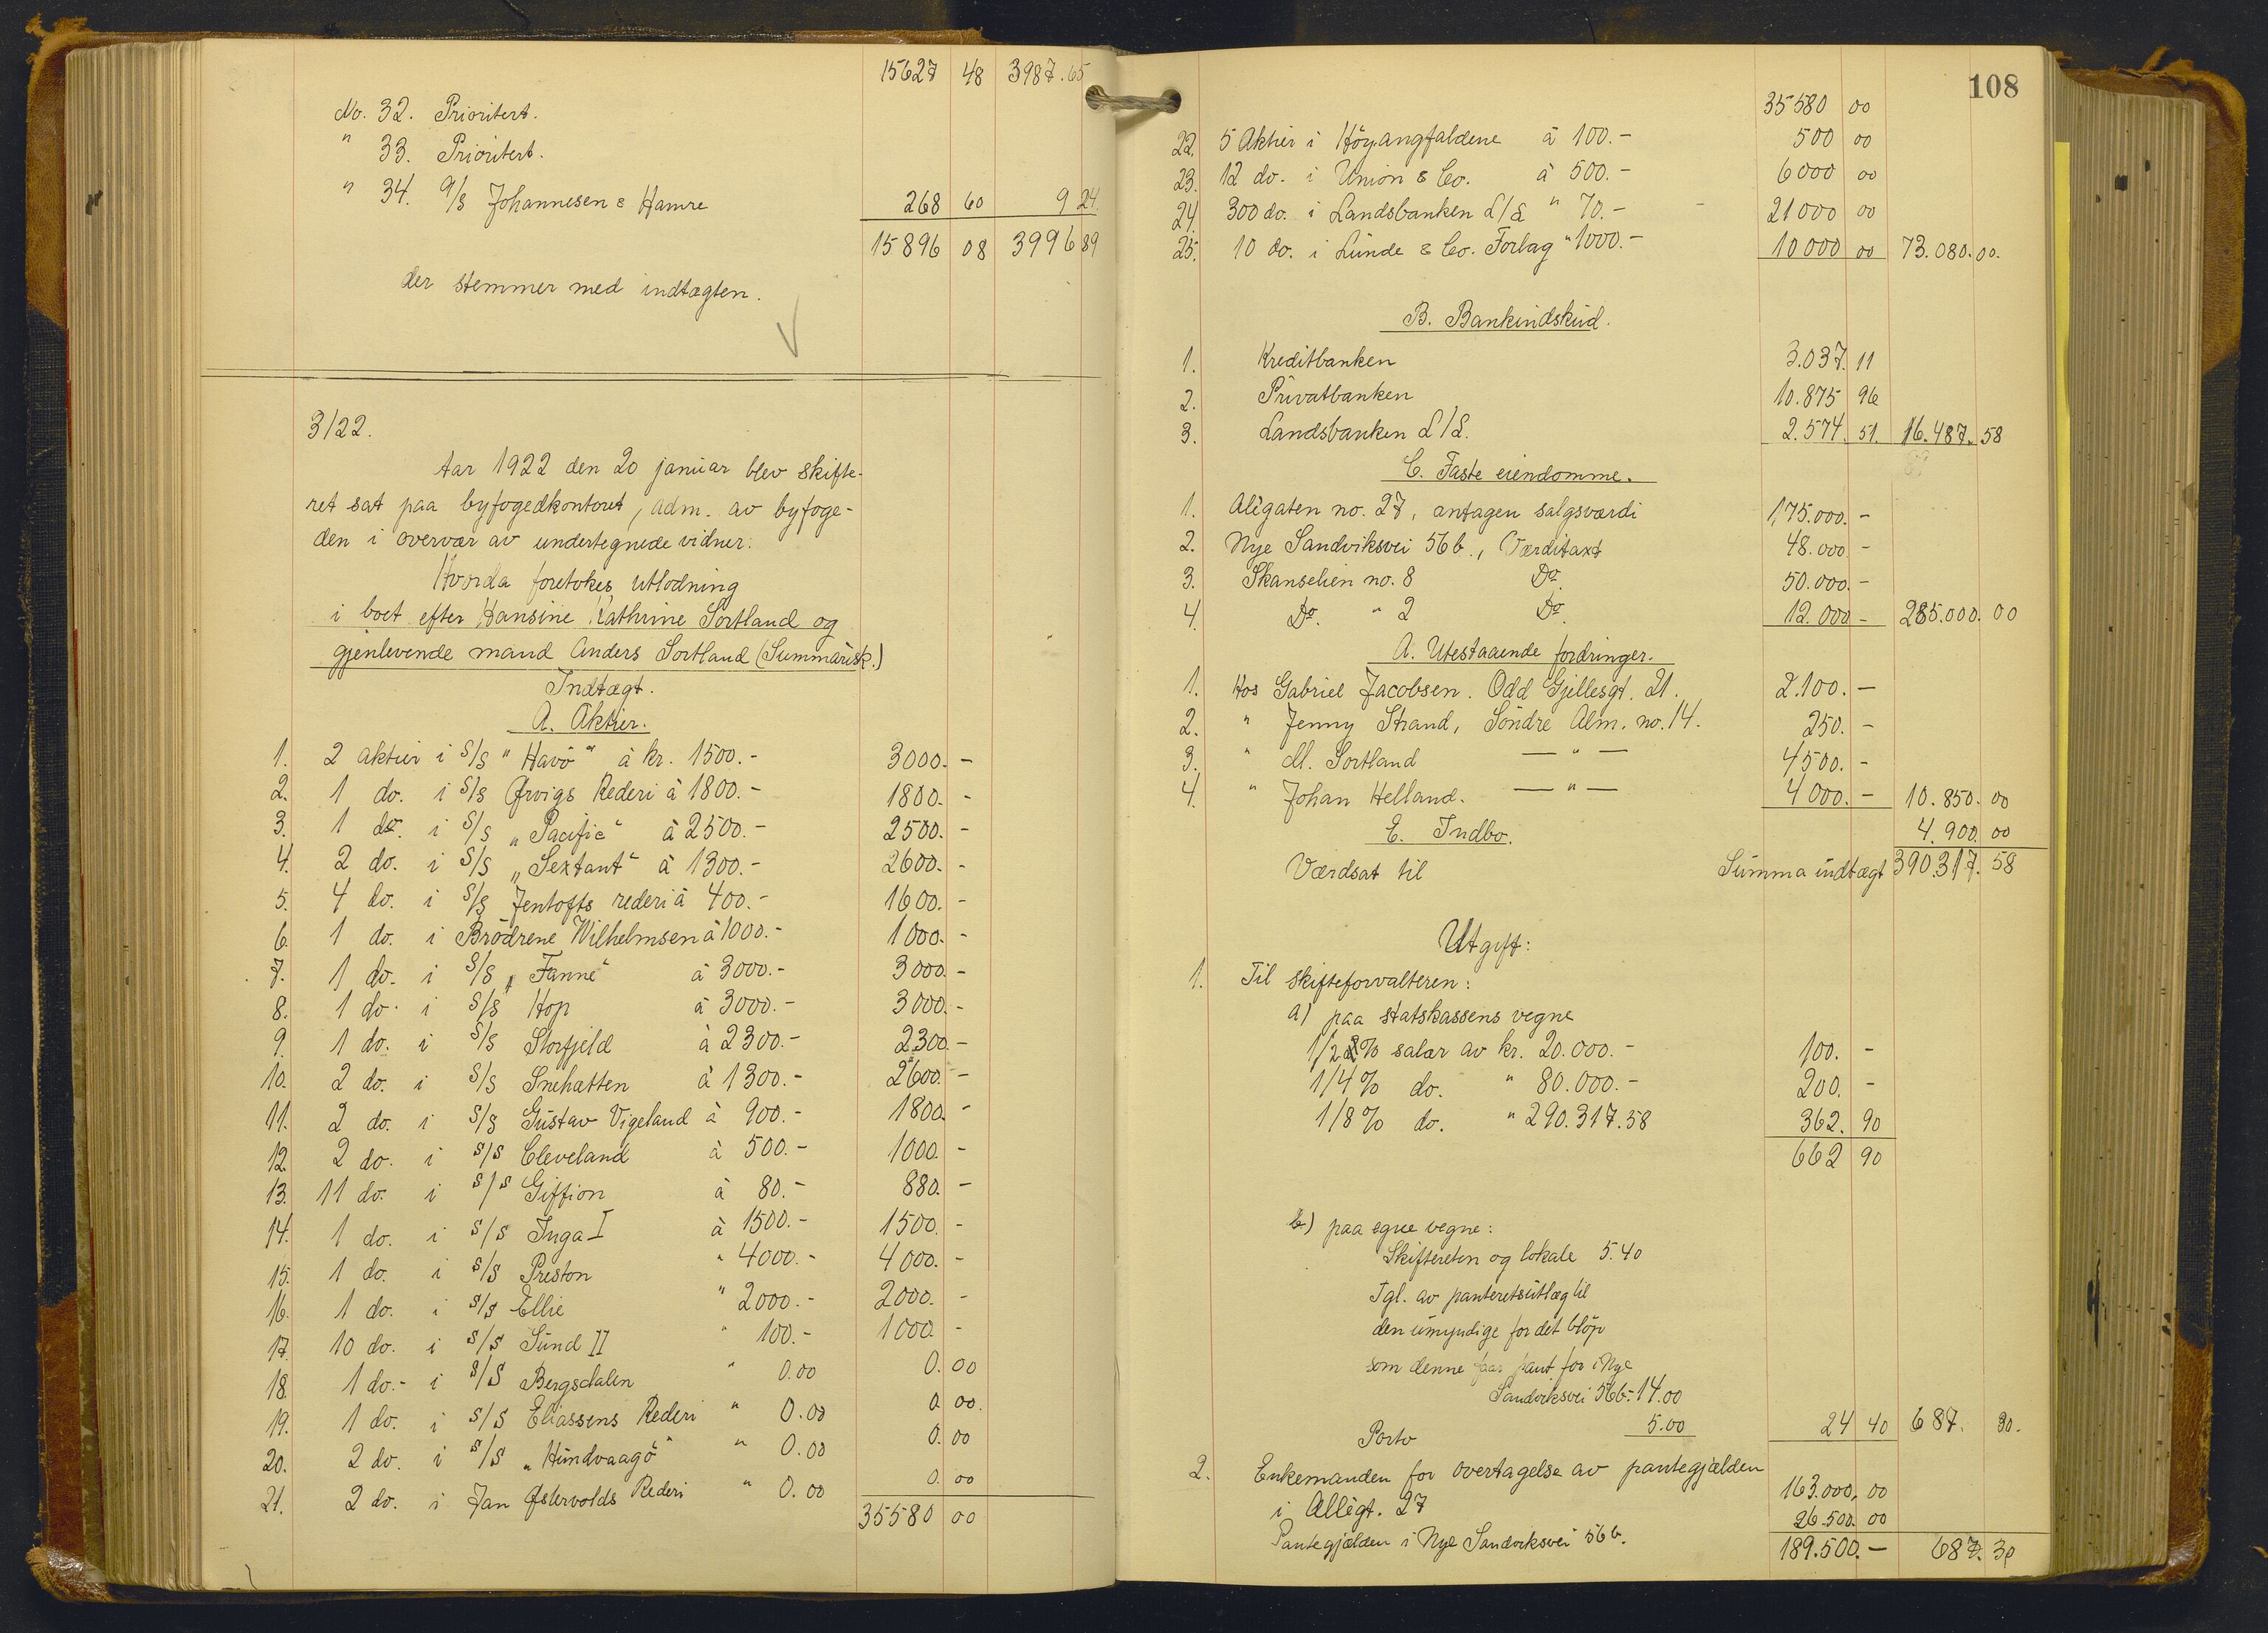 15627 48 3987.65
No. 32. Prioritert.
" 33. Prioritert.
" 34. A/S Johannesen & Hamre 268 60 9 24.
15896 08 3996 89
der stemmer med indtægten.
3/22.
Aar 1922 den 20 januar blev skifte-
ret sat paa byfogedkontoret, adm. av byfoge-
den i overvær av undertegnede vidner.
Hvorda foretokes utlodning
i boet efter Hansine Kathrine Sortland og
gjenlevende mand Anders Sortland (Summarisk.)
Indtægt.
A. Aktier.
1. 2 aktier i S/S "Havö" à kr. 1500.- 3000. -
2. 1 do. i S/S Ørvigs Rederi à 1800.- 1800. -
3. 1 do. i S/S "Pacific" à 2500.- 2500. -
4. 2 do. i S/S "Sextant" à 1300.- 2600. -
5. 4 do. i S/S Jentofts rederi à 400.- 1600. -
6. 1 do. i Brödrene Wilhelmsen à 1000.- 1000. -
7. 1 do. i S/S "Fanne" à 3000.- 3000. -
8. 1 do. i S/S Hop à 3000.- 3000. -
9. 1 do. i S/S Storfjeld à 2300.- 2300. -
10. 2 do. i S/S Snehatten à 1300.- 2600. -
11. 2 do. i S/S Gustav Vigeland à 900.- 1800. -
12. 2 do. i S/S Cleveland à 500.- 1000. -
13. 11 do. i S/S Giffion à 80.- 880. -
14. 1 do. i S/S Inga I à 1500.- 1500. -
15. 1 do. i S/S Preston " 4000.- 4000. -
16. 1 do. i S/S Ellie " 2000.- 2000. -
17. 10 do. i S/S Sund II " 100.- 1000 -
18. 1 do.- i S/S Bergsdalen " 0.00 0. 00
19. 1 do. i S/S Eliassens Rederi " 0.00 0 00.
20. 2 do. i S/S "Hundvaagö" " 0.00 0. 00
21. 2 do. i Jan Østervolds Rederi " 0.00 0. 00
35580 00
108
35580 00
22. 5 Aktier i Höyangfaldene à 100.- 500 00
23. 12 do. i Union & Co. à 500.- 6000 00
24. 300 do. i Landsbanken L/L " 70.- 21000 00
25. 10 do. i Lunde & Co. Forlag " 1000.- 10000 00 73.080.00.
B. Bankindskud.
1. Kreditbanken 3.037. 11
2. Privatbanken 10.875 96
3. Landsbanken L/L. 2.574. 51. 16.487. 58
C. Faste eiendomme.
1. Aligaten no. 27, antagen salgsværdi 175.000. -
2. Nye Sandviksvei 56 b., Værditaxt 48.000 -
3. Skanselien no. 8 Do. 50.000. -
4. Do. " 2 Do. 12.000 - 285.000. 00
A. Utestaaende fordringer.
1. Hos Gabriel Jacobsen. Odd Gjellesgt. 21. 2.100. -
2. " Jenny Strand, Söndre Alm. no. 14. 250. -
3. " M. Sortland — " — 4500. -
4. " Johan Helland. — " — 4000. - 10.850. 00
E. Indbo. 4.900. 00
Værdsat til Summa indtægt 390.317. 58
Utgift:
1. Til skifteforvalteren:
a) paa statskassens vegne
1/2 % salær av kr. 20.000.- 100. -
1/4 % do. " 80.000.- 200. -
1/8 % do. " 290.317.58 362. 90
662 90
b) paa egne vegne:
Skifteretten og lokale 5.40
Tgl. av panteretsutlæg til
den umyndige for det blöp
som denne faar pant for i Nye
Sandviksvei 56b.- 14.00
Porto 5.00 24 40 687. 30.
2. Enkemanden for overtagelse av pantegjælden
i Alligt. 27 163.000, 00
26.500. 00
Pantegjælden i Nye Sandviksvei 56 b.
189.500. - 687. 30